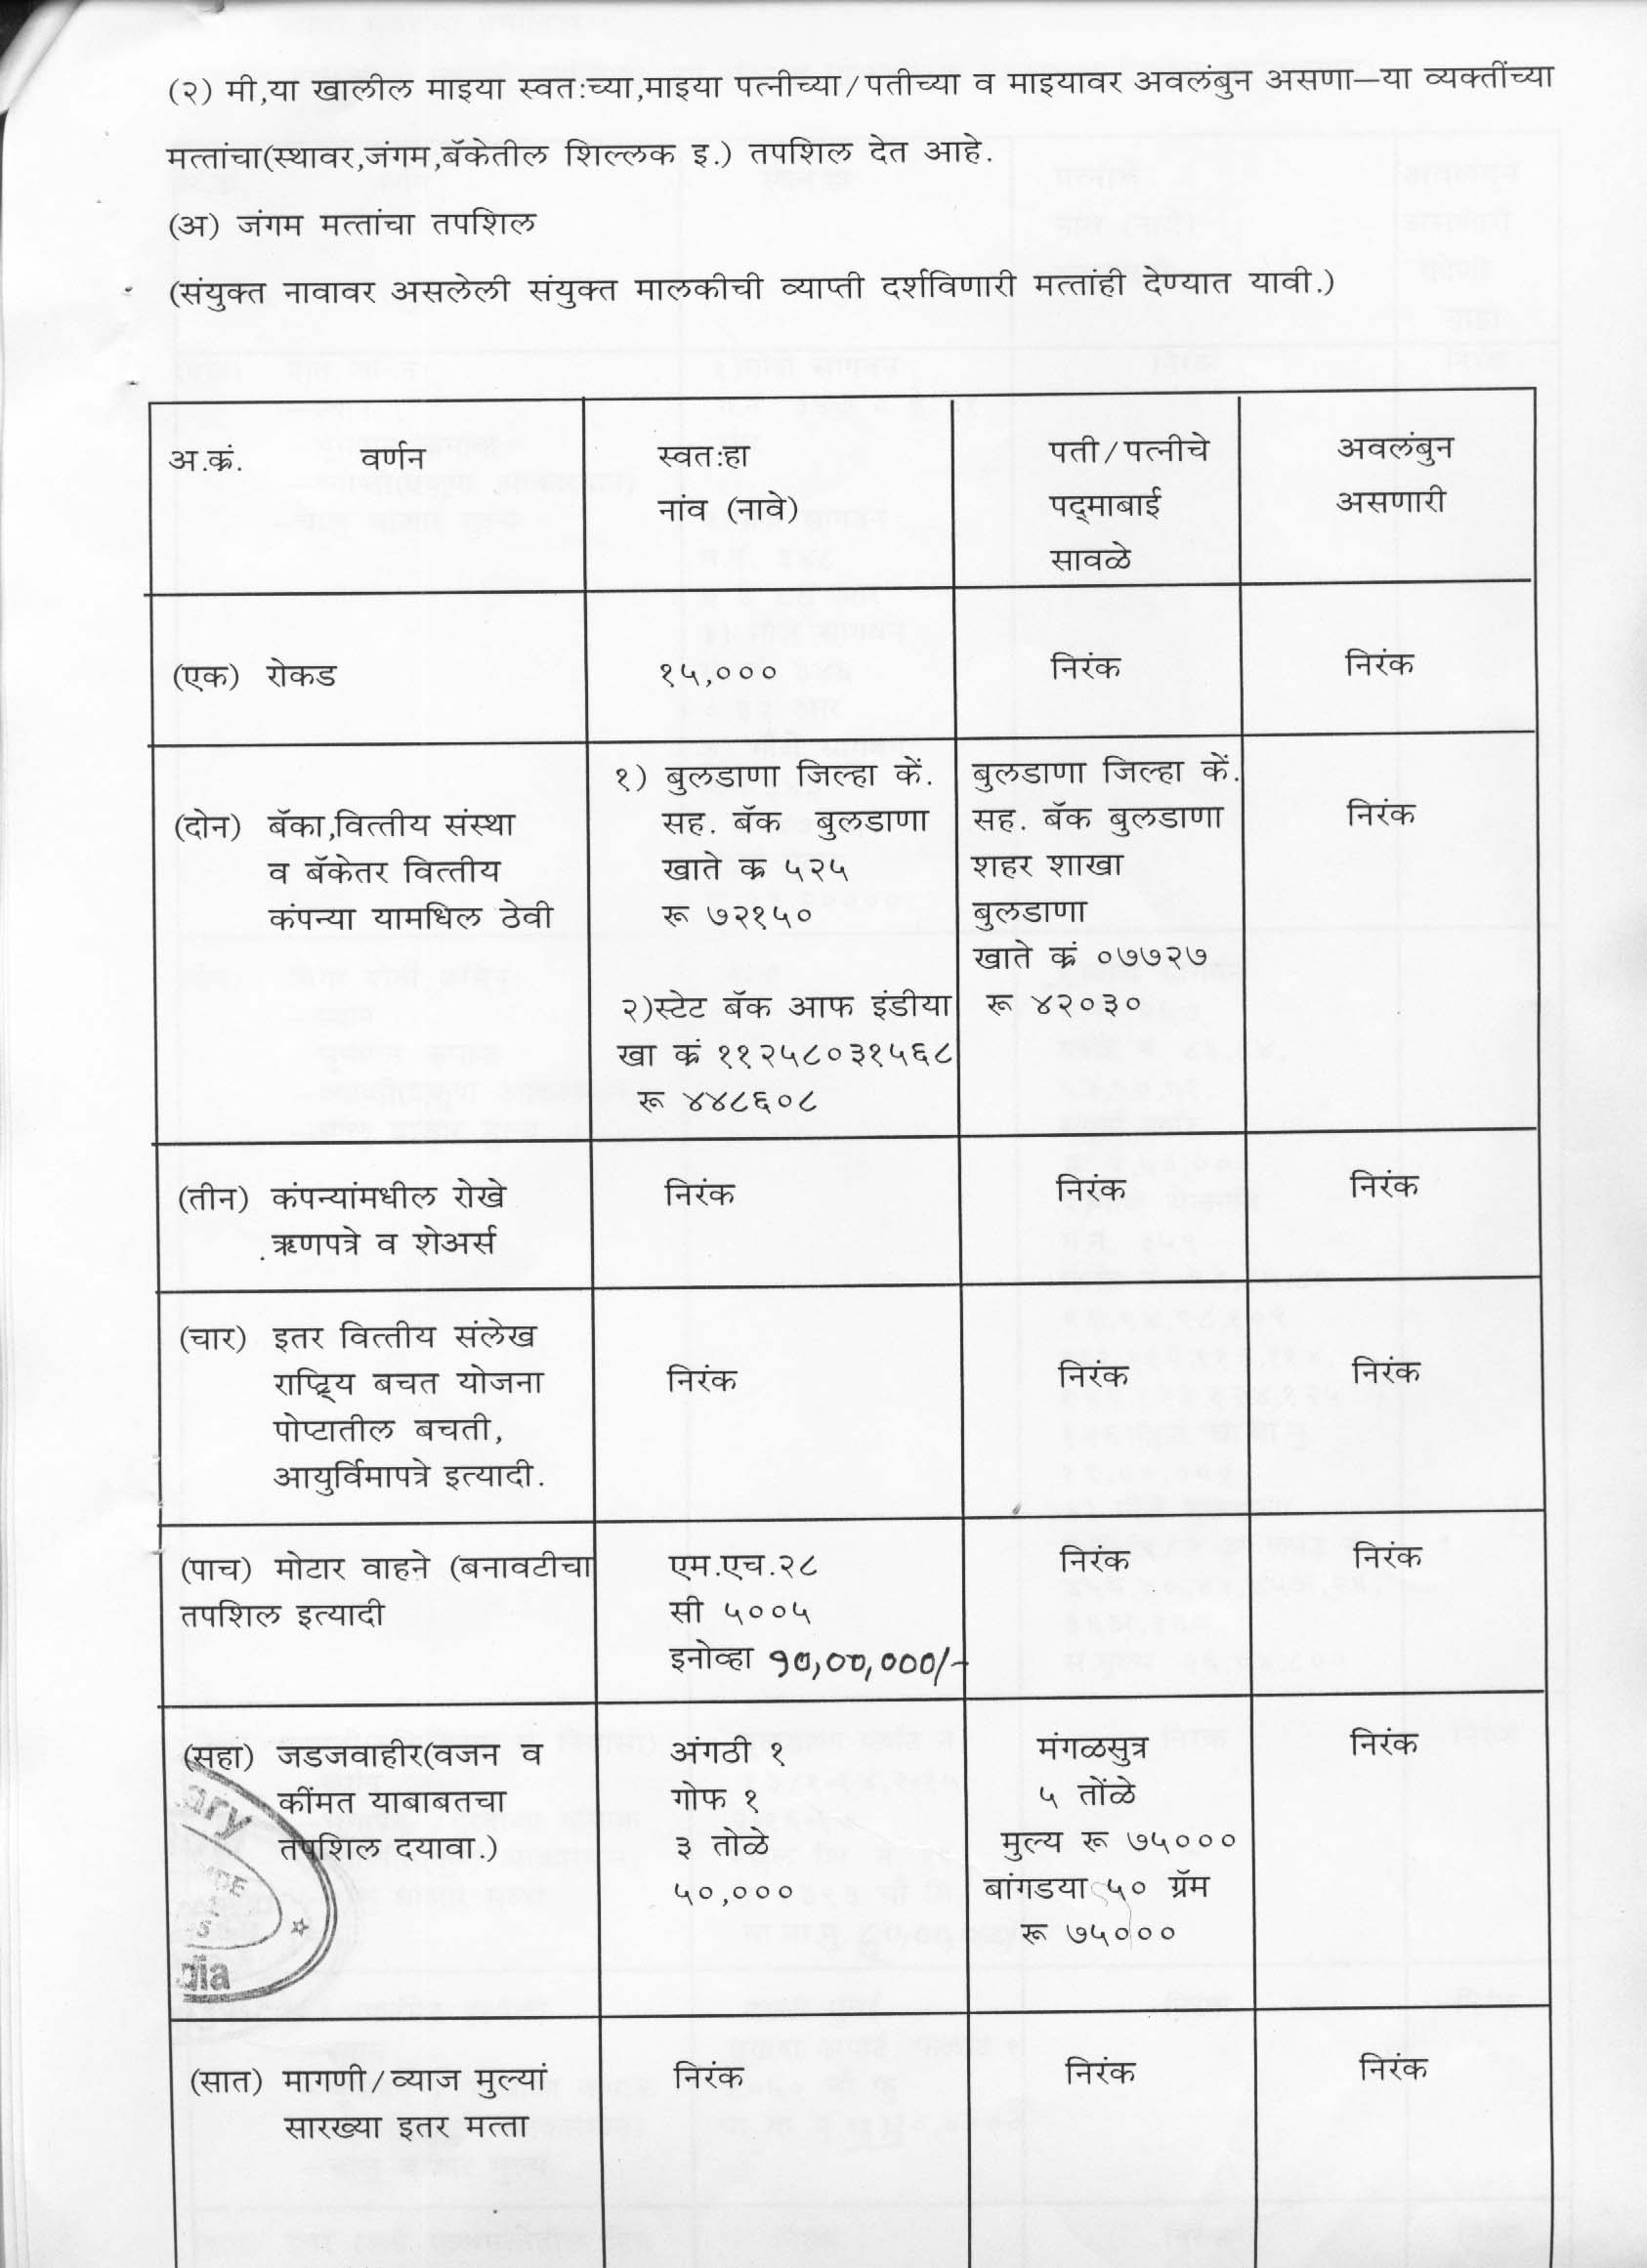 (२) मी,या खालील माझ्या स्वतःच्या,माझ्या पत्नीच्या/पतीच्या व माझ्यावर अवलंबुन असणा—या व्यक्तींच्या
मत्तांचा(स्थावर,जंगम,बॅकेतील शिल्लक इ.) तपशिल देत आहे.
(अ) जंगम मत्तांचा तपशिल
(संयुक्त नावावर असलेली संयुक्त मालकीची व्याप्ती दर्शविणारी मत्तांही देण्यात यावी.)
अ.क्रं. वर्णन
स्वतःहा
नांव (नावे)
पती/पत्नीचे
पद्माबाई
सावळे
अवलंबुन
असणारी
(एक) रोकड
१५,०००
निरंक
निरंक
(दोन) बॅका,वित्तीय संस्था
व बॅकेतर वित्तीय
कंपन्या यामधिल ठेवी
१) बुलडाणा जिल्हा कें.
सह. बॅक बुलडाणा
खाते क्र ५२५
रू ७२१५०
२)स्टेट बॅक आफ इंडीया
खा क्रं ११२५८०३१५६८
रू ४४८६०८
बुलडाणा जिल्हा कें.
सह. बॅक बुलडाणा
शहर शाखा
बुलडाणा
खाते क्रं ०७७२७
रू ४२०३०
निरंक
(तीन) कंपन्यांमधील रोखे
ऋणपत्रे व शेअर्स
निरंक
निरंक
निरंक
(चार) इतर वित्तीय संलेख
राष्ट्रिय बचत योजना
पोष्टातील बचती,
आयुर्विमापत्रे इत्यादी.
निरंक
निरंक
निरंक
(पाच) मोटार वाहने (बनावटीचा
तपशिल इत्यादी
एम.एच.२८
सी ५००५
इनोव्हा १०,००,०००/-
निरंक
निरंक
(सहा) जडजवाहीर(वजन व
कींमत याबाबतचा
तपशिल दयावा.)
अंगठी १
गोफ १
३ तोळे
५०,०००
मंगळसुत्र
५ तोंळे
मुल्य रू ७५०००
बांगडया ५० ग्रॅम
रू ७५०००
निरंक
(सात) मागणी/व्याज मुल्यां
सारख्या इतर मत्ता
निरंक
निरंक
निरंक